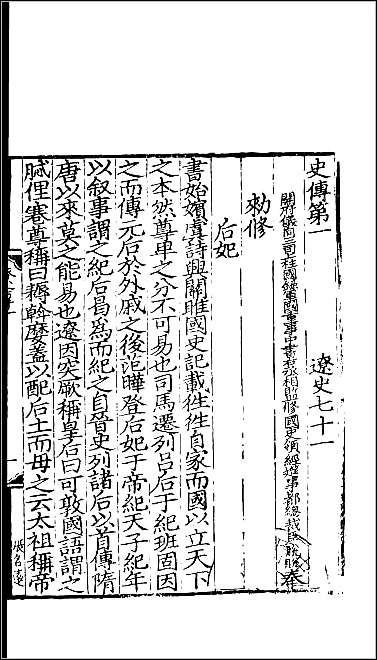 史傳第一　遼史七十一
開府儀同三司上柱國錄軍國重事中書右丞相監修國史領經筵事都總裁臣脫脫奉
勑修
后妃
書始嬪虞詩興關雎國史記載徃徃自家而國以立天下
之本然尊卑之分不可易也司馬遷列呂后于紀班固因
之而傳元后於外戚之後范曄登后妃于帝紀天子紀年
以叙事謂之紀后曷爲而紀之自晉史列諸后以首傳隋
唐以來莫之能易也遼因突厥稱皇后曰可敦國語謂之
脦俚蹇尊稱曰耨斡麽盖以配后土而母之云太祖稱帝